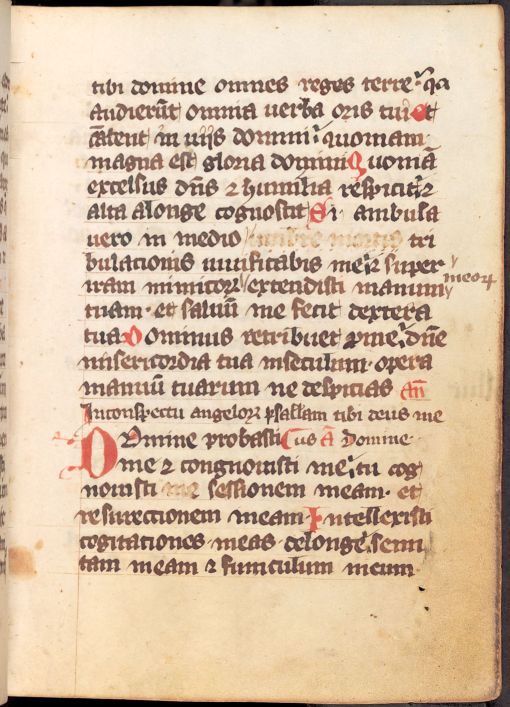 tibi domine omnes reges terre qa
audierūt omnia uerba oris tui et
cātent in uijs domini quoniam
magna est gloria domini Quoniā
excelsus dn̄s ⁊ humilia respicit ⁊
alta alonge cognoscit Si ambula
uero in medio tri
bulationis uiuificabis me ⁊ super
iram inimicoꝝ meoꝝ extendisti manum
tuam · et saluū me fecit dextera
tua Dominus retribuet ꝓ me dn̄e
misericordia tua inseculum · opera
manuū tuarum ne despicias an̄
Inconspectu angeloꝝ psallam tibi deus me
Domine probasti us ā Domine ·
me ⁊ congnouisti me tu cog
nouisti me sessionem meam · et
resurectionem meam Intellexisti
cogitationes meas delonge semi
tam meam ⁊ funiculum meum